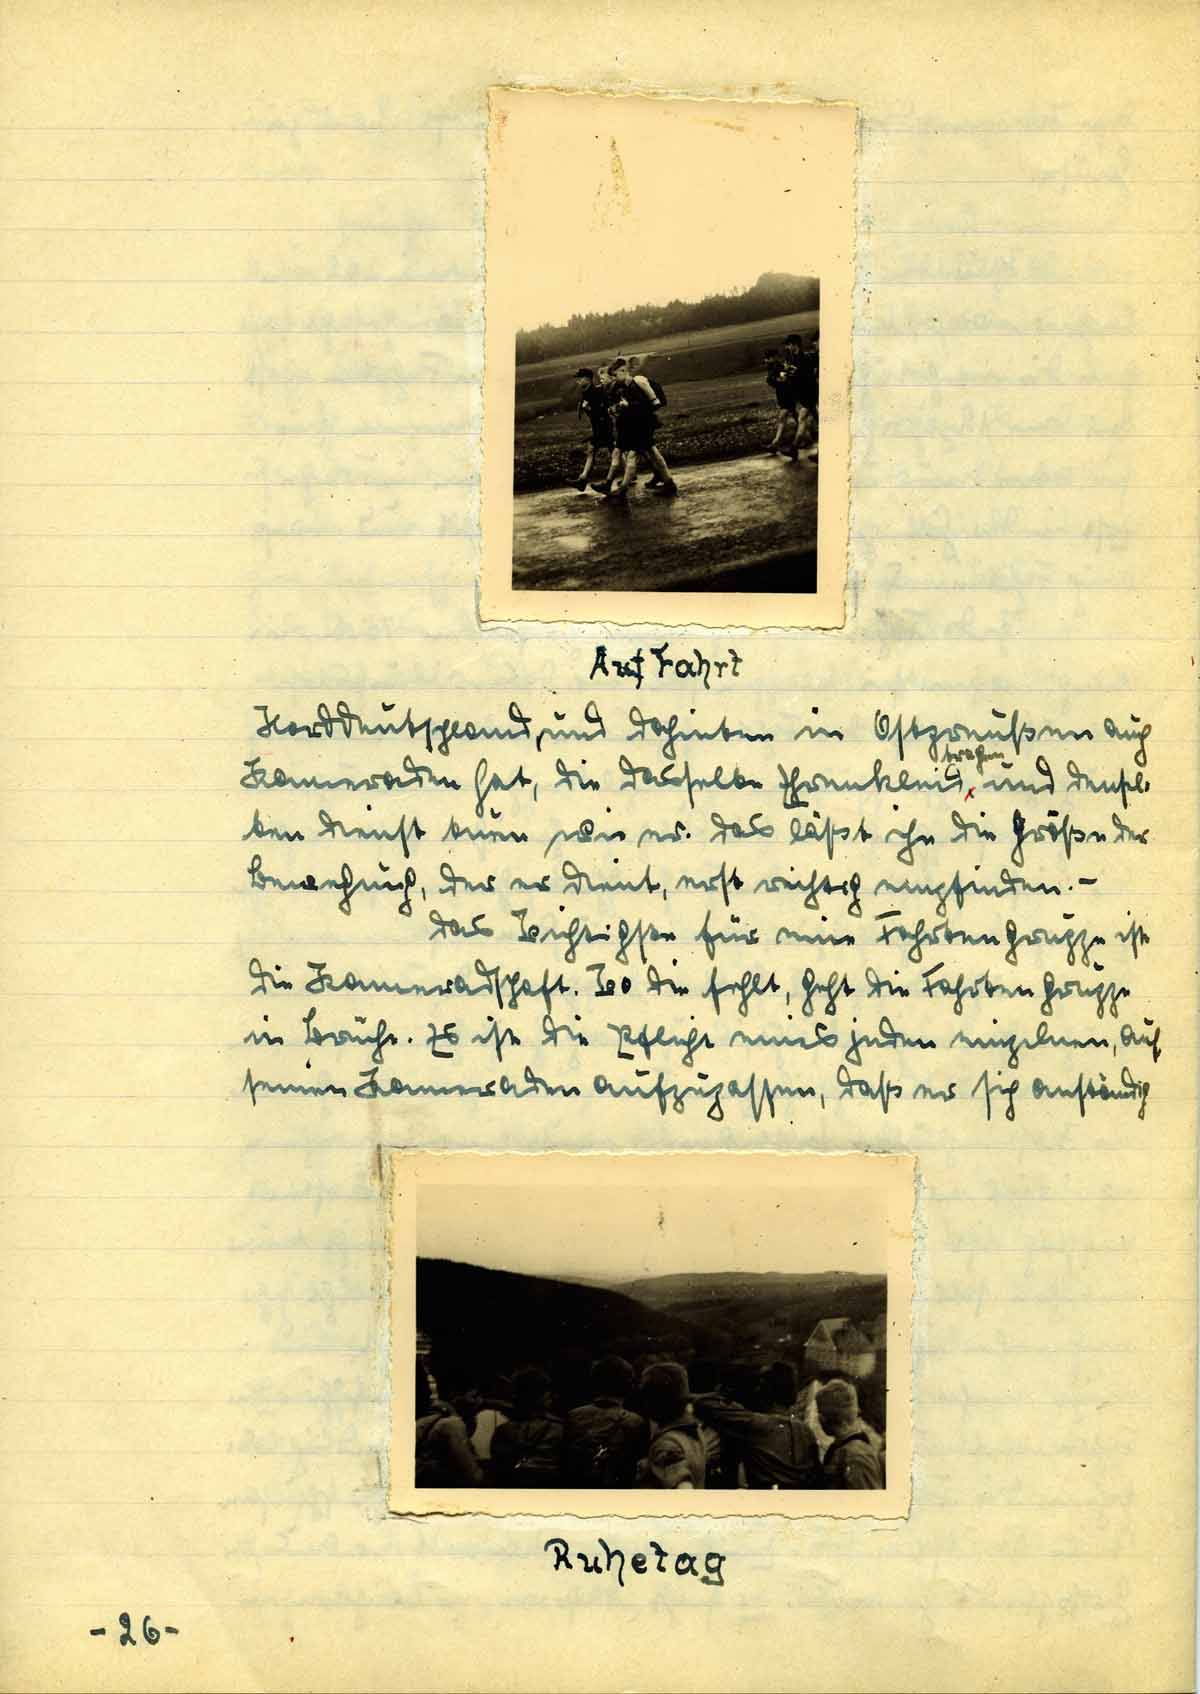 Auf Fahrt
Norddeutschland, und dahinten in Ostpreußen auch
tragen
Kameraden hat, die dasselbe Ehrenkleid und densel-
ben Dienst tuen wie er. Das läßt ihn die Größe der
Bewegung, der er dient, erst richtig empfinden.-
Das Wichtigste für eine Fahrtengruppe ist
die Kameradschaft. Wo die fehlt, geht die Fahrtengruppe
in Brüche. Es ist die Pflicht eines jeden einzelnen, auf
seinen Kameraden aufzupassen, daß er sich anständig
Ruhetag
-26-